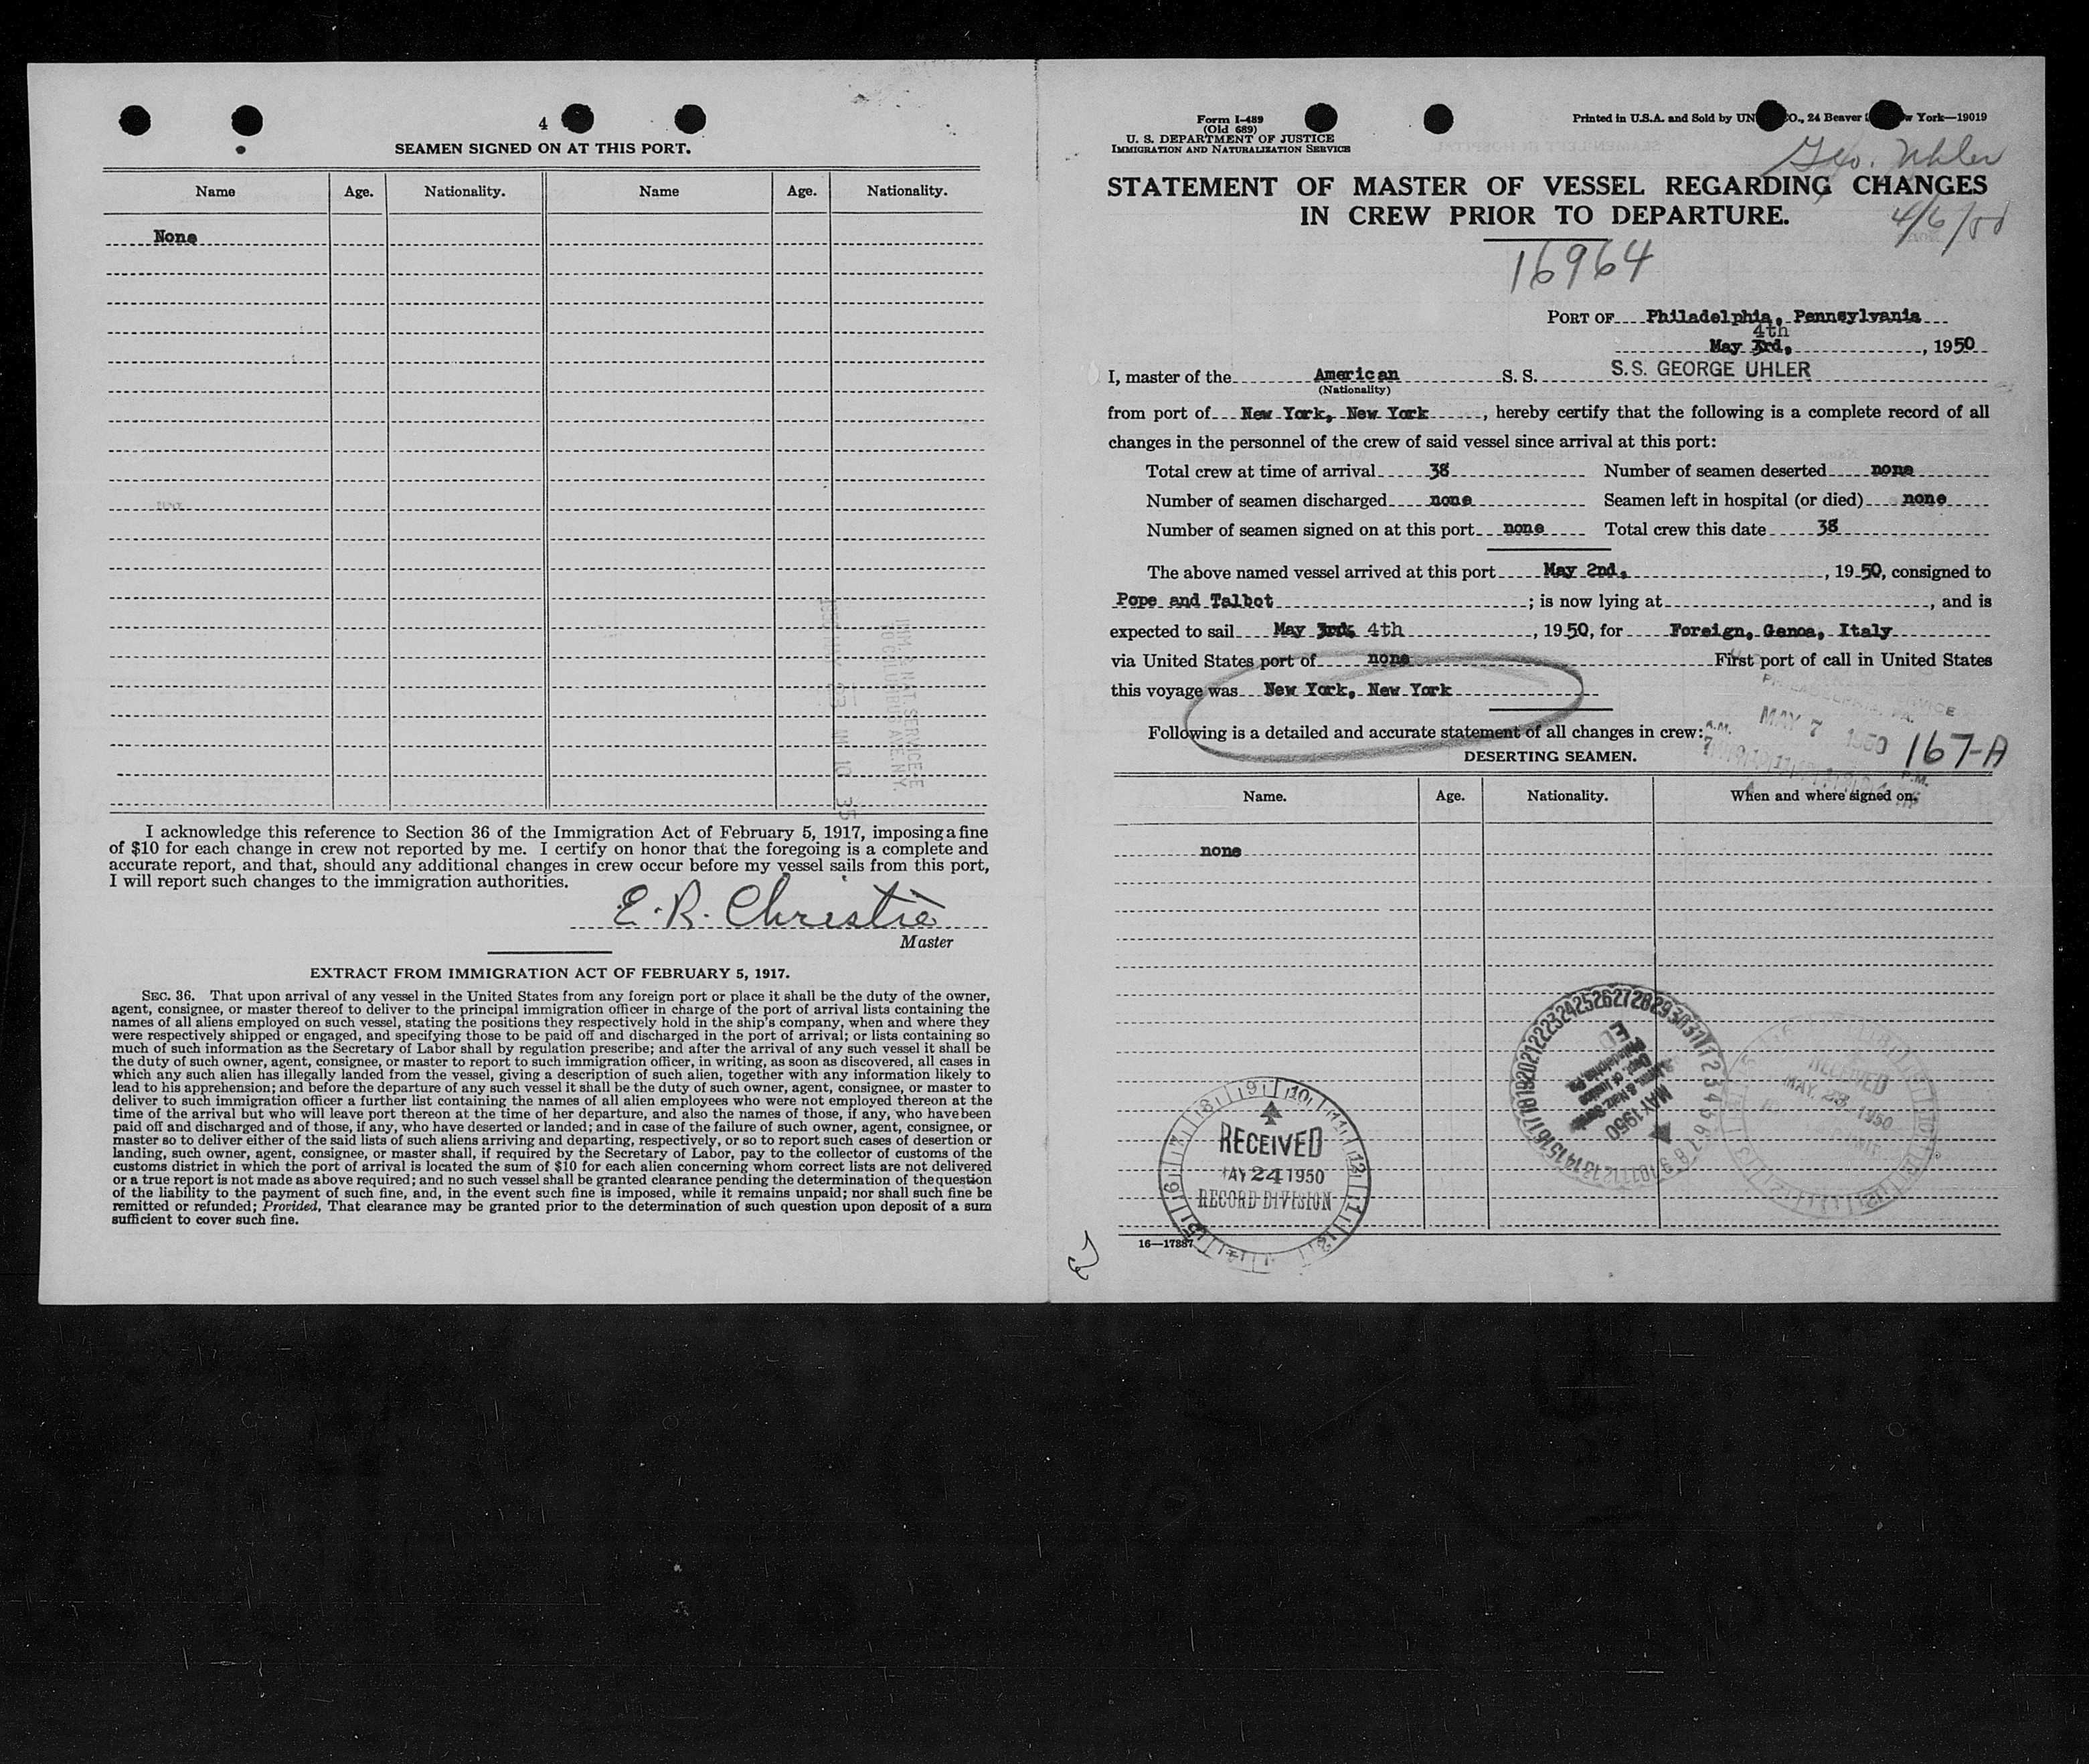 4
SEAMEN SIGNED ON AT THIS PORT.
Name Age. Nationality. Name Age. Nationality.
None
I acknowledge this reference to Section 36 of the Immigration Act of February 5, 1917, imposing a fine
of $10 for each change in crew not reported by me. I certify on honor that the foregoing is a complete and
accurate report, and that, should any additional changes in crew occur before my vessel sails from this port,
I will report such changes to the immigration authorities.
E. R. Christie
Master
EXTRACT FROM IMMIGRATION ACT OF FEBRUARY 5, 1917.
SEC. 36. That upon arrival of any vessel in the United States from any foreign port or place it shall be the duty of the owner,
agent, consignee, or master thereof to deliver to the principal immigration officer in charge of the port of arrival lists containing the
names of all aliens employed on such vessel, stating the positions they respectively hold in the ship's company, when and where they
were respectively shipped or engaged, and specifying those to be paid off and discharged in the port of arrival; or lists containing so
much of such information as the Secretary of Labor shall by regulation prescribe; and after the arrival of any such vessel it shall be
the duty of such owner, agent, consignee, or master to report to such immigration officer, in writing, as soon as discovered, all cases in
which any such alien has illegally landed from the vessel, giving a description of such alien, together with any information likely to
lead to his apprehension; and before the departure of any such vessel it shall be the duty of such owner, agent, consignee, or master to
deliver to such immigration officer a further list containing the names of all alien employees who were not employed thereon at the
time of the arrival but who will leave port thereon at the time of her departure, and also the names of those, if any, who have been
paid off and discharged and of those, if any, who have deserted or landed; and in case of the failure of such owner, agent, consignee, or
master so to deliver either of the said lists of such aliens arriving and departing, respectively, or so to report such cases of desertion or
landing, such owner, agent, consignee, or master shall, if required by the Secretary of Labor, pay to the collector of customs of the
customs district in which the port of arrival is located the sum of $10 for each alien concerning whom correct lists are not delivered
or a true report is not made as above required; and no such vessel shall be granted clearance pending the determination of the question
of the liability to the payment of such fine, and, in the event such fine is imposed, while it remains unpaid; nor shall such fine be
remitted or refunded; Provided, That clearance may be granted prior to the determination of such question upon deposit of a sum
sufficient to cover such fine.
Form I-489
(Old 689)
U. S. DEPARTMENT OF JUSTICE
IMMIGRATION AND NATURALIZATION SERVICE
Printed in U.S.A. and Sold by UN O., 24 Beaver York—19019
Geo. Uhler
STATEMENT OF MASTER OF VESSEL REGARDING CHANGES
IN CREW PRIOR TO DEPARTURE.
4/6/50
16964
PORT OF Philadelphia, Pennsylvania
4th
May 3rd, , 1950
I, master of the American S. S. S.S. GEORGE UHLER
(Nationality)
from port of New York, New York , hereby certify that the following is a complete record of all
changes in the personnel of the crew of said vessel since arrival at this port:
Total crew at time of arrival 38 Number of seamen deserted none
Number of seamen discharged none Seamen left in hospital (or died) none
Number of seamen signed on at this port none Total crew this date 38
The above named vessel arrived at this port May 2nd, , 1950, consigned to
Pope and Talbot ; is now lying at , and is
expected to sail May 3rd, 4th , 1950, for Foreign, Genoa, Italy
via United States port of none First port of call in United States
this voyage was New York, New York
Following is a detailed and accurate statement of all changes in crew:
MAY 7 1950
167-A
DESERTING SEAMEN.
Name. Age. Nationality. When and where signed on.
none
Dept. of Justice
MAY 1950
RECEIVED
MAY 23 1950
RECEIVED
MAY 24 1950
RECORD DIVISION
16—17887